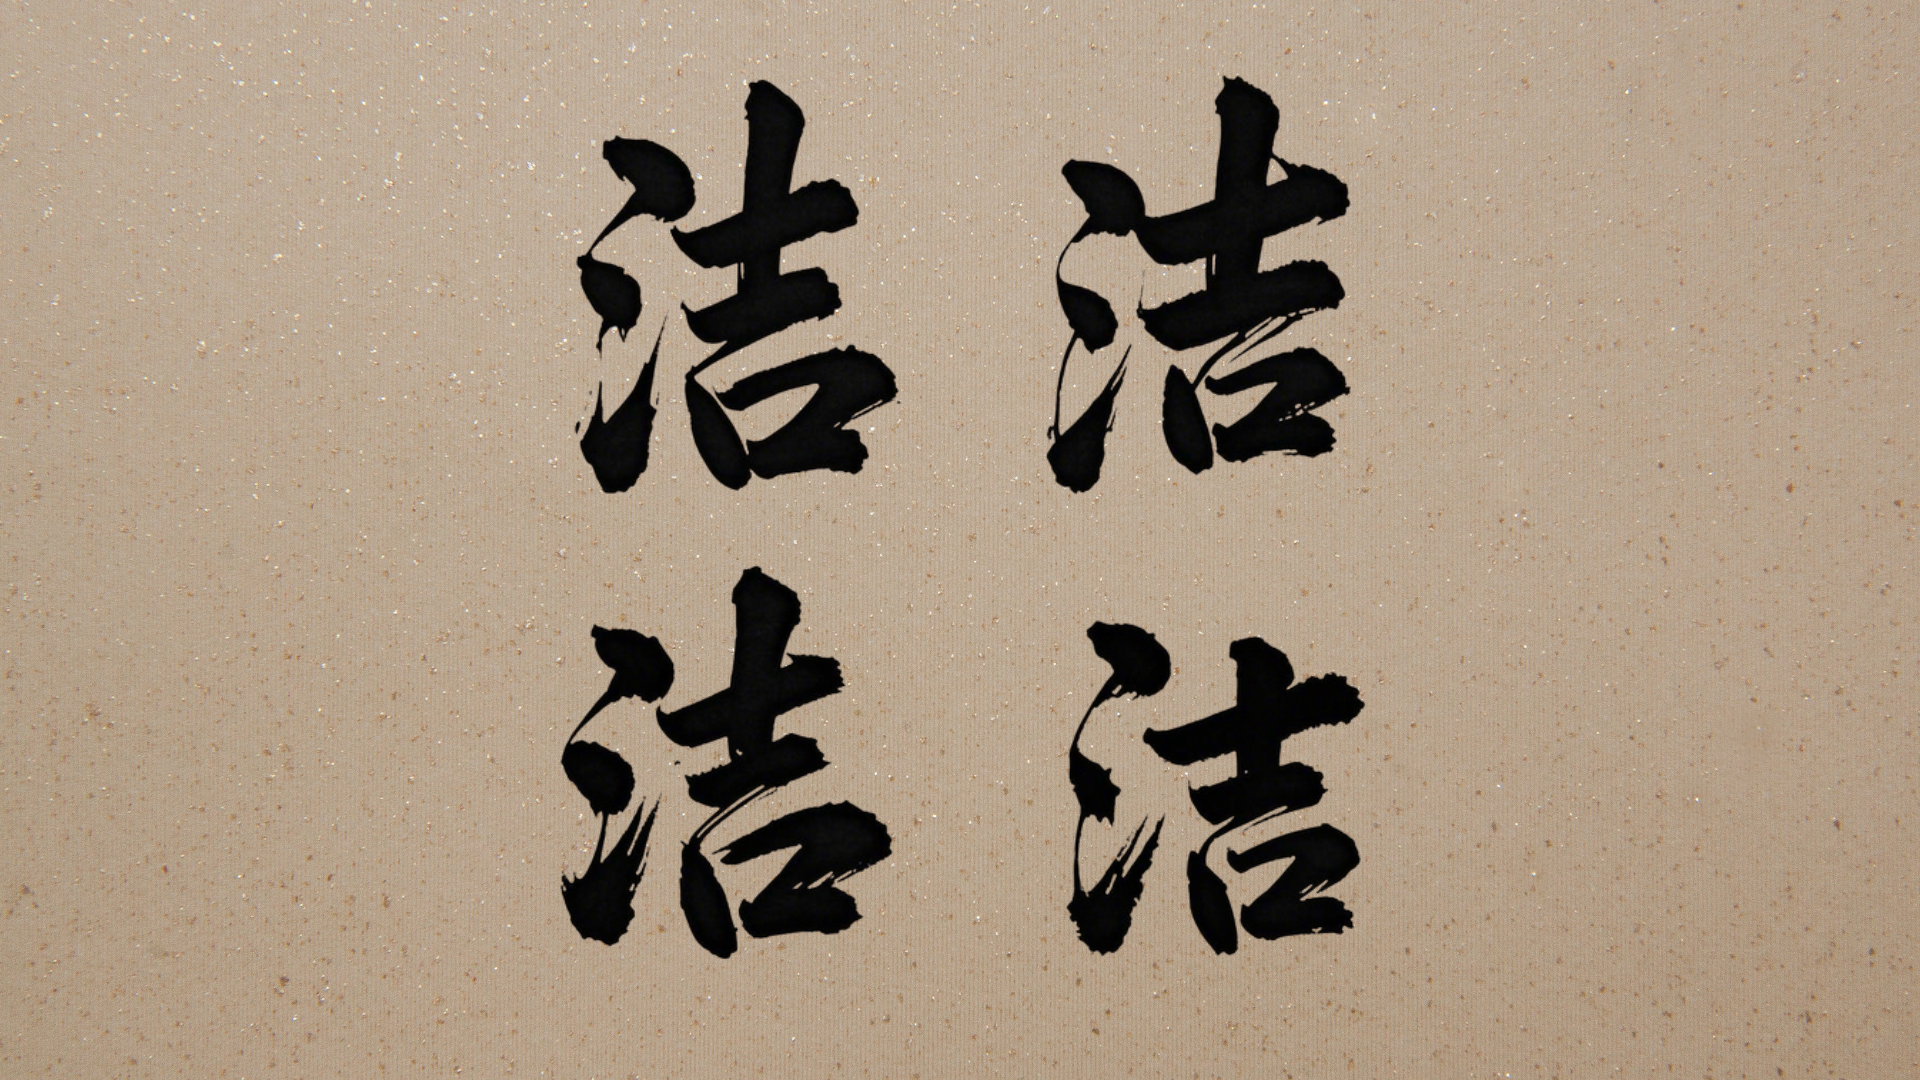 洁洁
洁洁